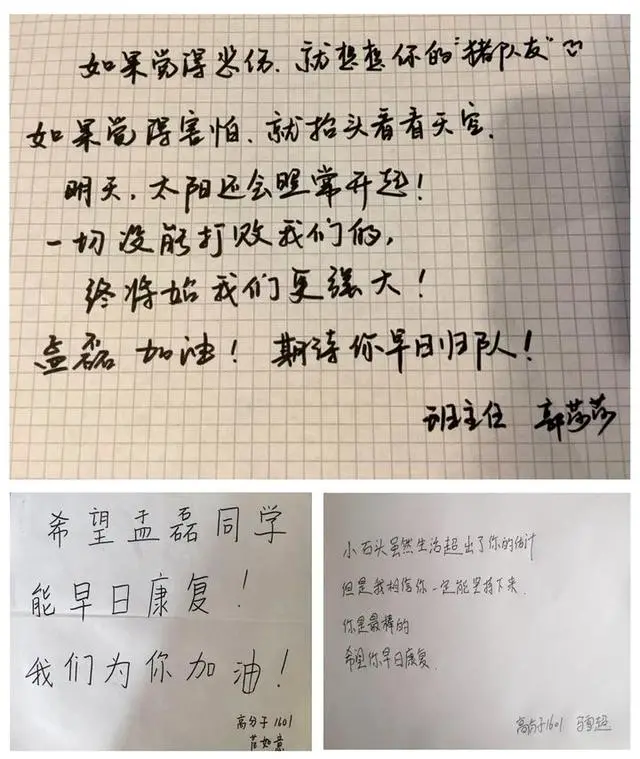 如果觉得悲伤、就想想你的"猪队友"
如果觉得害怕、就抬头看看天空、
明天，太阳还会照常升起！
一切没能打败我们的，
终将使我们更强大！
孟磊 加油！期待你早日归队！
班主任 郭莎莎
希望孟磊同学
能早日康复！
我们为你加油！
高分子1601
如意
小石头虽然生活超出了你的估计
但是我相信你一定能坚持下来
你是最棒的
希望你早日康复.
高分子1601